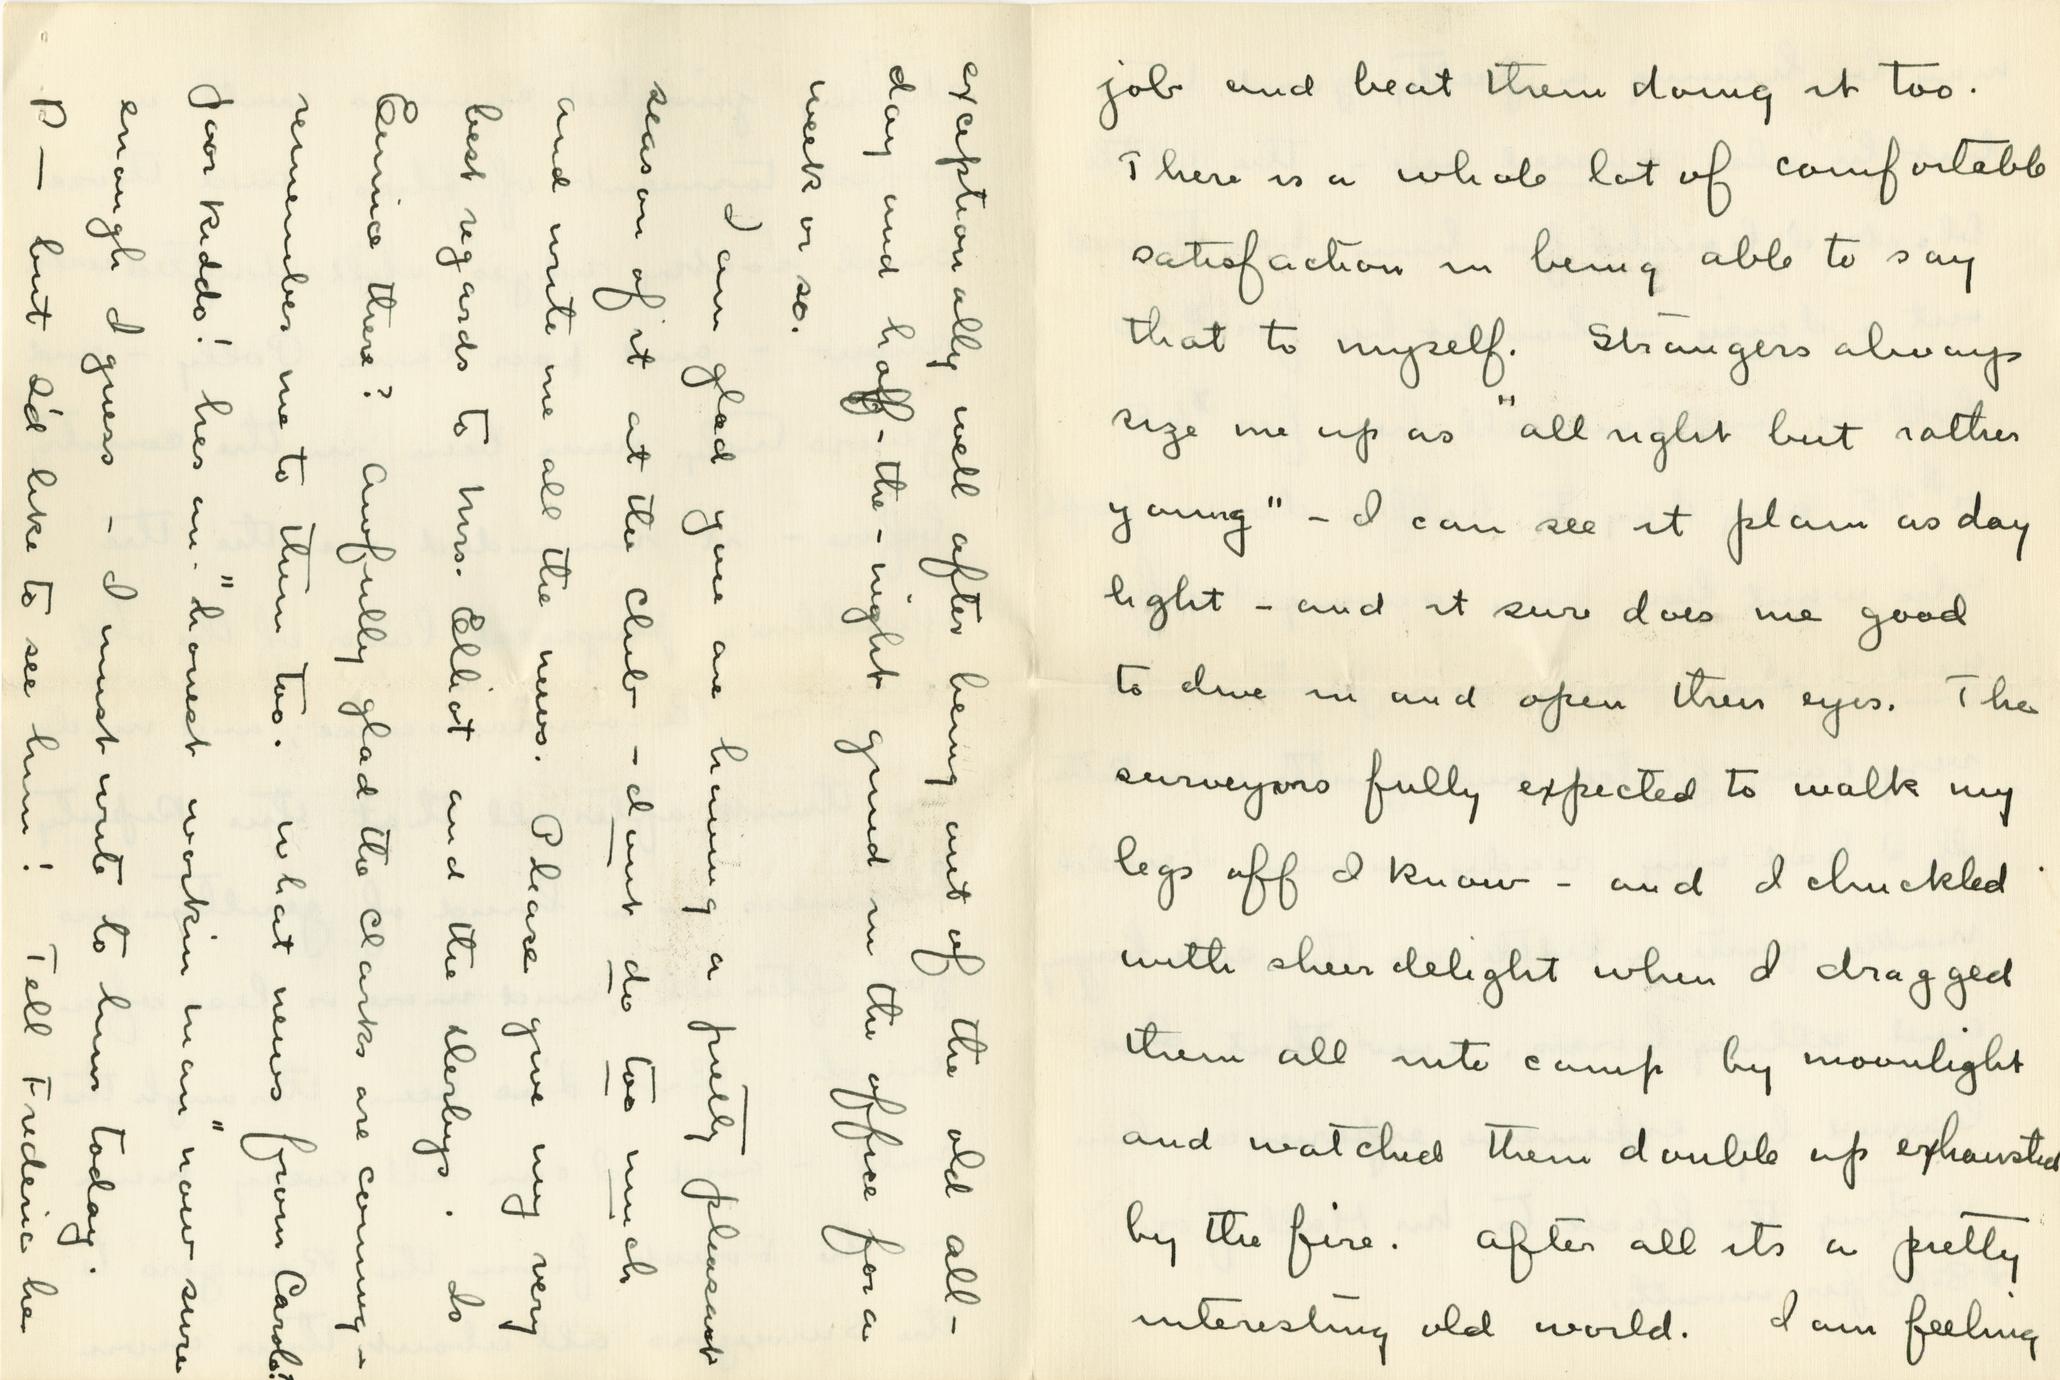 job and beat them doing it too.
There is a whole lot of comfortable
satisfaction in being able to say
that to myself. Strangers always
size me up as "all right but rather
young" - I can see it plain as day
light - and it sure does me good
to drive in and open their eyes. The
surveyors fully expected to walk my
legs off I know - and I chuckled
with sheer delight when I dragged
them all into camp by moonlight
and watched them double up exhausted
by the fire. After all its a pretty
interesting old world. I am feeling
exceptionally well after being out of the old all-
day and half-the-night grind in the office for a
week or so.
I am glad you are having a pretty pleasant
season of it at the club - dont do too much
and write me all the news. Please give my very
best regards to Mrs. Elliot and the Derbys. Is
Eunice there? Awfully glad the Clarks are coming -
remember me to them too. What news from Carola?
Poor kiddo! hes an "honest workin man" now sure
enough I guess - I must write to him today.
P — but I'd like to see him! Tell Frederica he